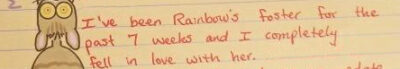 2
I've been Rainbow's foster for the
past 7 weeks and I completely
fell in love with her.